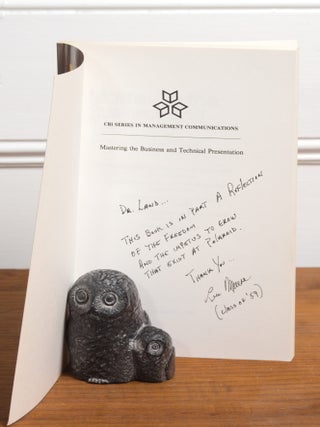 CBI SERIES IN MANAGEMENT COMMUNICATIONS
Mastering the Business and Technical Presentation
DR. LAND...
THIS BOOK IS IN PART A REFLECTION
OF THE FREEDOM
AND THE IMPETUS TO GROW
THAT EXIST AT POLAROID.
THANK YOU...
(CLASS OF '59)